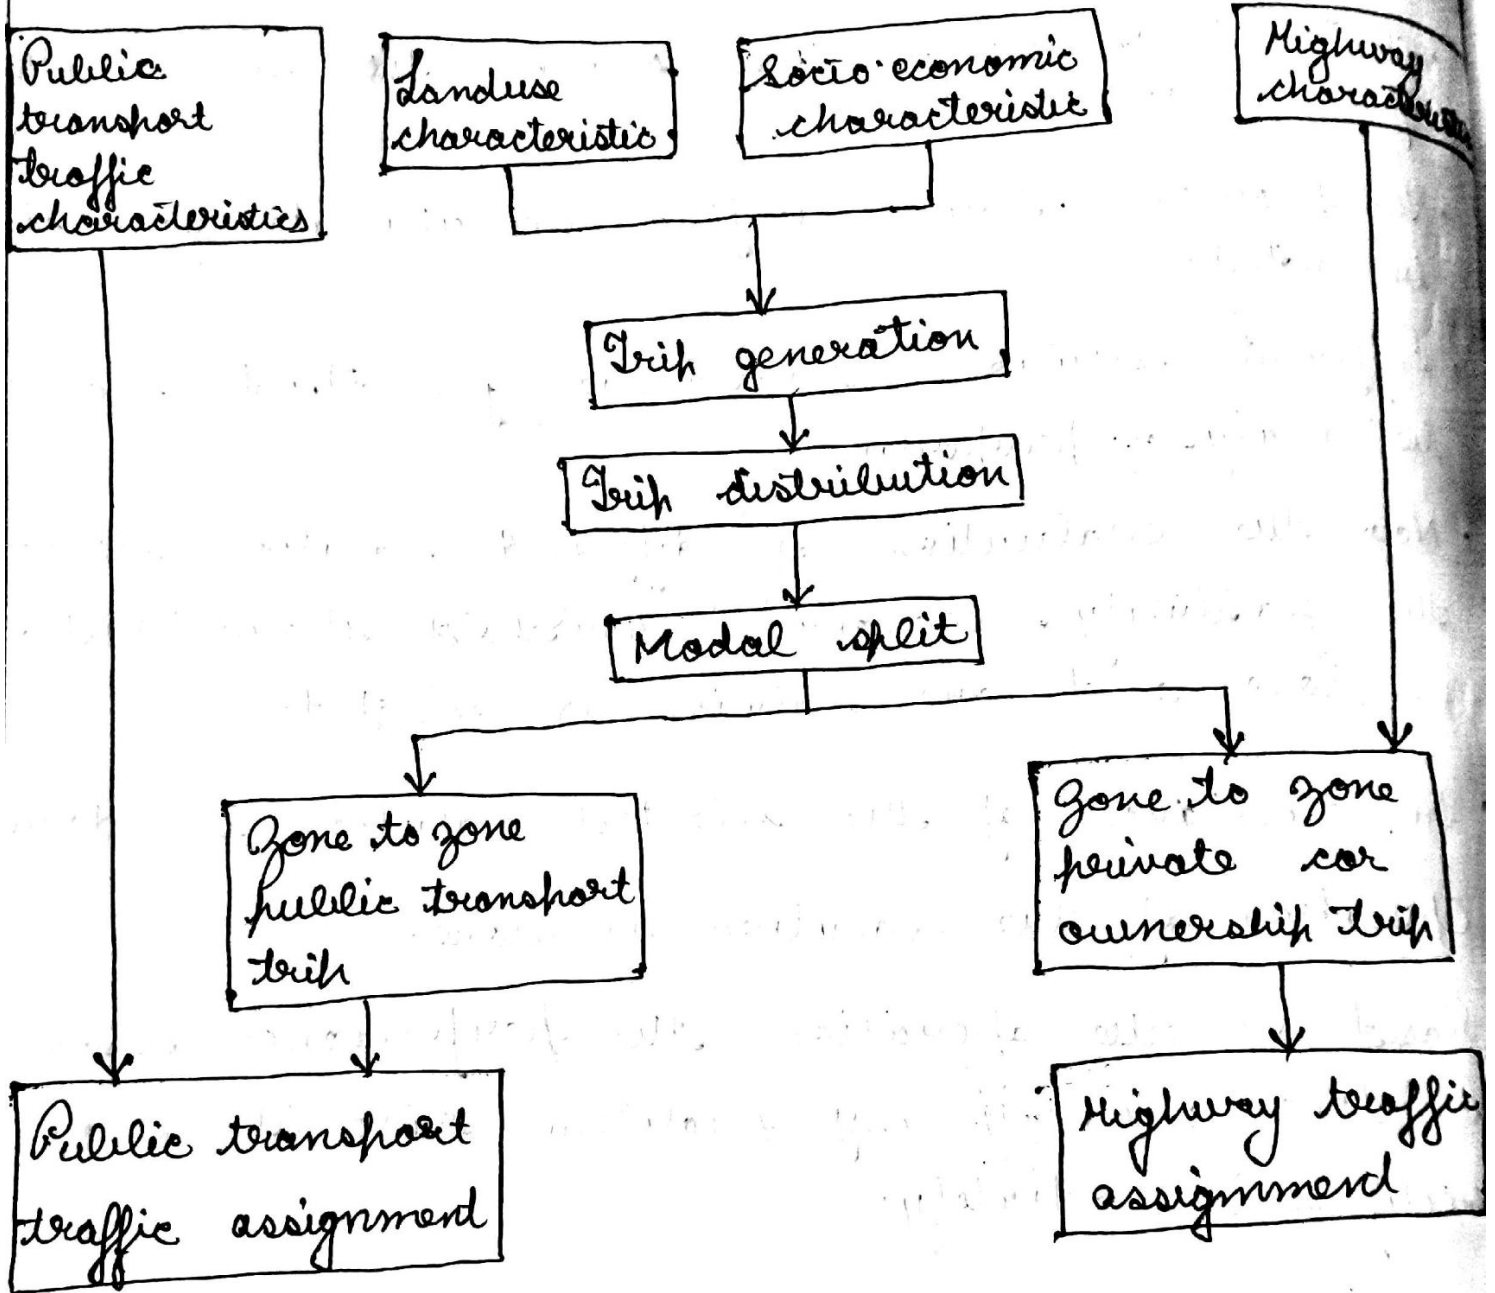 Public
transport
traffic
characteristics
Landuse
characteristic
Socio-economic
characteristic
Highway
characteristic
Trip generation
Trip distribution
Modal split
Zone to zone
public transport
trip
Zone to zone
private car
ownership trip
Public transport
traffic assignment
Highway traffic
assignment